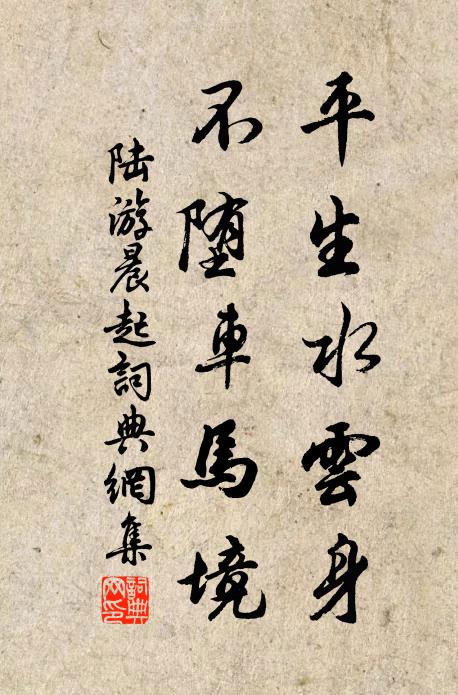 平生水雲身
不堕車馬境
陆游晨起詞典網集
詞典網印